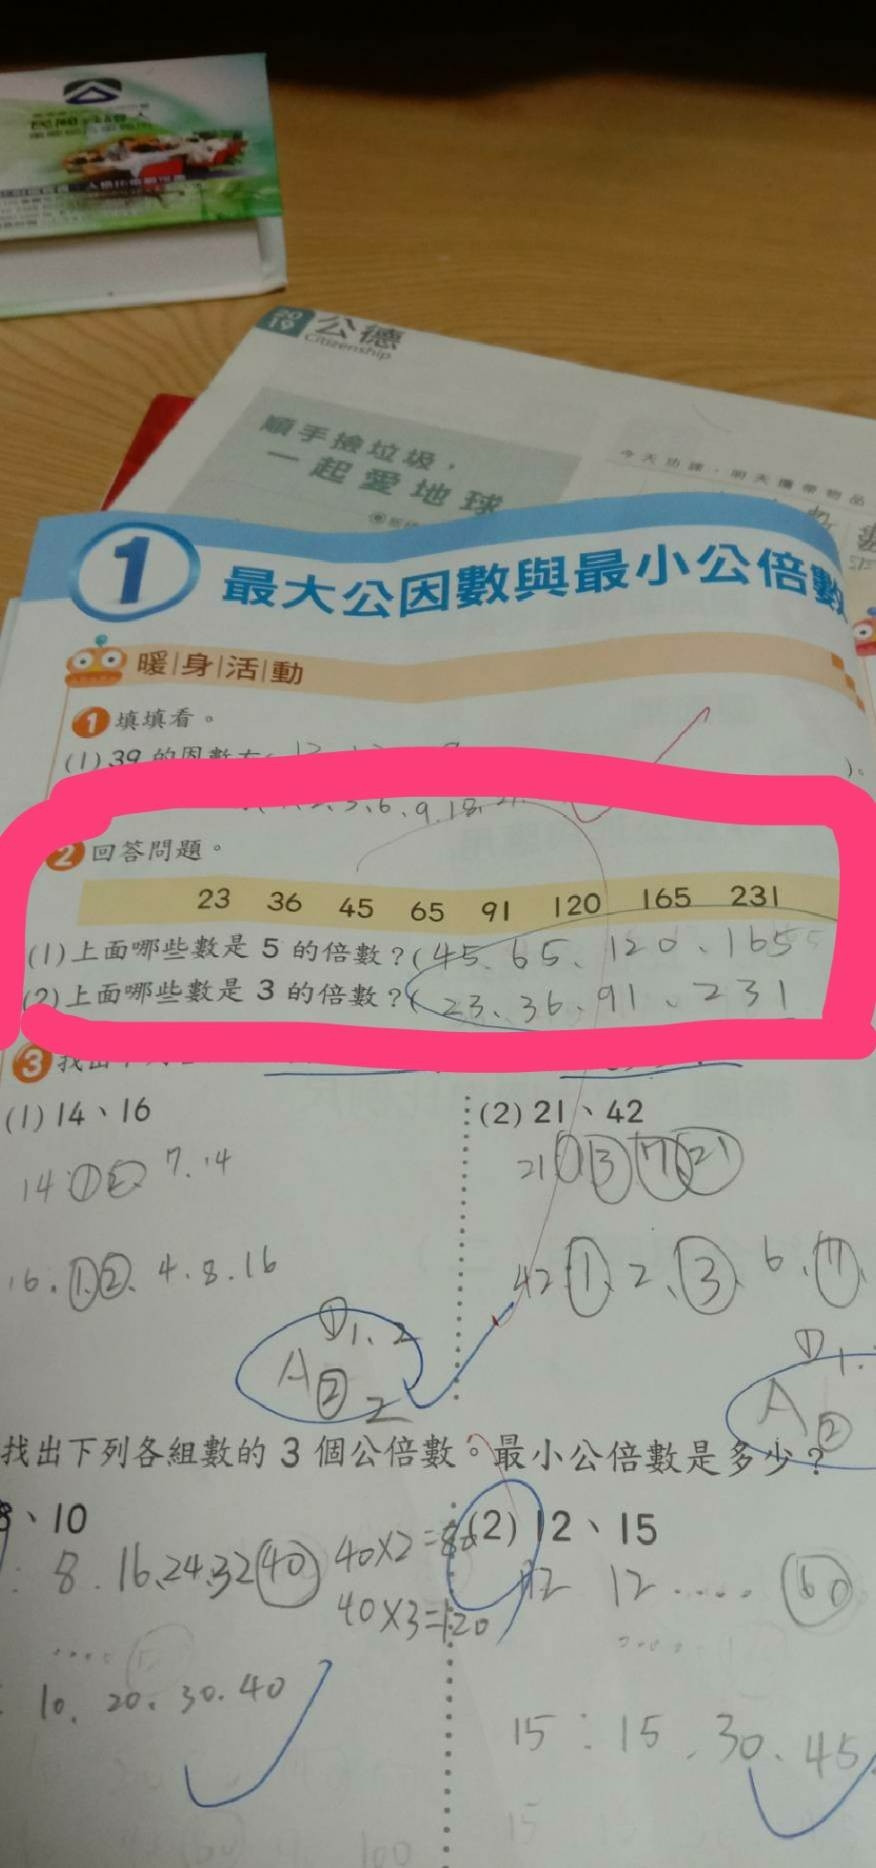 2019 公德
Citizenship
順手撿垃圾，
一起愛地球
今天功課，明天攜帶物品
1 最大公因數與最小公倍數
暖|身|活|動
1 填填看。
(1) 39 的因數有(
)。
3、6、9、18
2 回答問題。
23 36 45 65 91 120 165 231
(1)上面哪些數是 5 的倍數？(45、65、120、165
(2)上面哪些數是 3 的倍數？(23、36、91、231
3 找出
(1) 14、16
(2) 21、42
14 ① ② 7.14
21 ① ③ ⑦ ㉑
16. ① ②、4.8.16
42 ①、2、③、6、⑦、
A ① 1、2
② 2
A ① 1.
②
找出下列各組數的 3 個公倍數。最小公倍數是多少？
8、10
(2) 12、15
: 8.16、24、32 40 40×2=80
40×3=120
12 12 .... 60
: 10、20、30.40
15 : 15、30、45